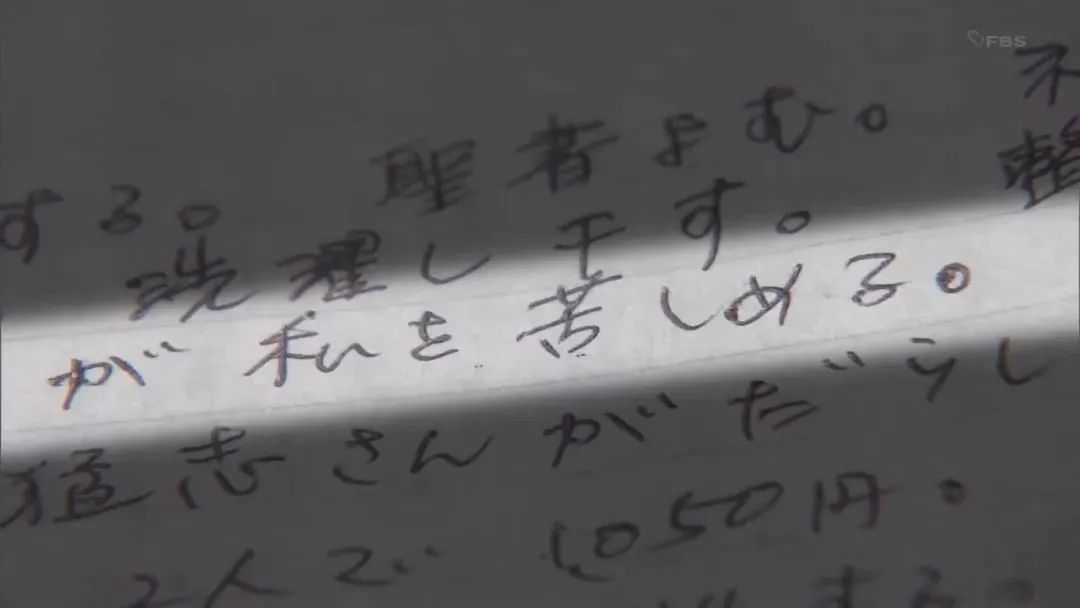 FBS
する。 聖書よむ。 不
洗濯し干す。 整
が私を苦しめる。
猛志さんがだうし
2人で 1,050円。
する。